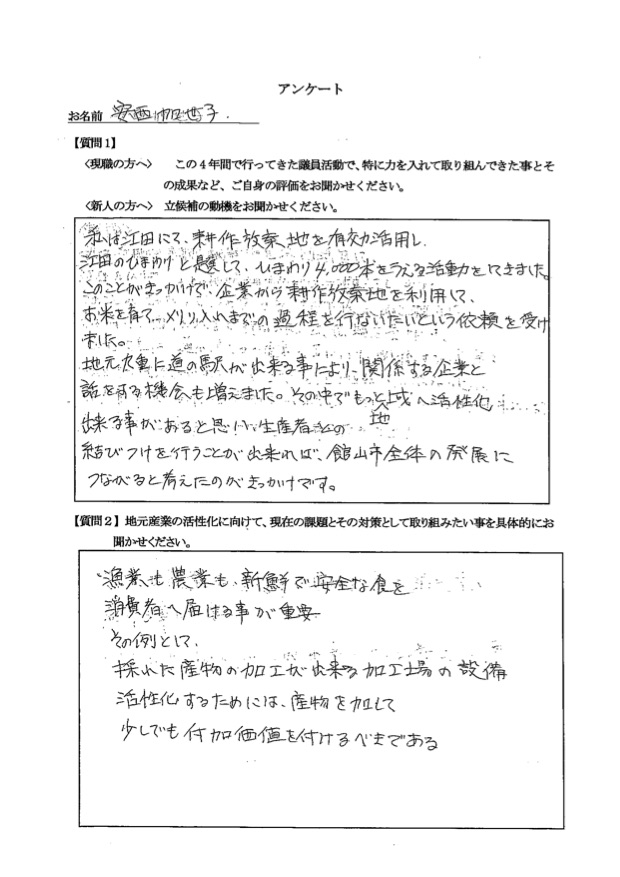 アンケート
お名前 安西加世子.
【質問1】
〈現職の方へ〉 この4年間で行ってきた議員活動で、特に力を入れて取り組んできた事とそ
の成果など、ご自身の評価をお聞かせください。
〈新人の方へ〉 立候補の動機をお聞かせください。
私は江田にて、耕作放棄地を有効活用し、
江田のひまわりと題して、ひまわり4,000本をうえる活動をしてきました。
このことがきっかけで、企業から耕作放棄地を利用して、
お米を育て、メリリ入れまでの過程を行ないたいという依頼を受け
ました。
地元九重に道の駅が出来る事により、関係する企業と
話をする機会も増えました。その中でもっと地域へ活性化
出来る事があると思い、生産者との
結びつけを行うことが出来れば、館山市全体の発展に
つながると考えたのがきっかけです。
【質問2】地元産業の活性化に向けて、現在の課題とその対策として取り組みたい事を具体的にお
聞かせください。
漁業も農業も、新鮮で安全な食を
消費者へ届ける事が重要
その例として、
採れた産物の加工が出来る加工場の設備
活性化するためには、産物を加工して
少しでも付加価値を付けるべきである